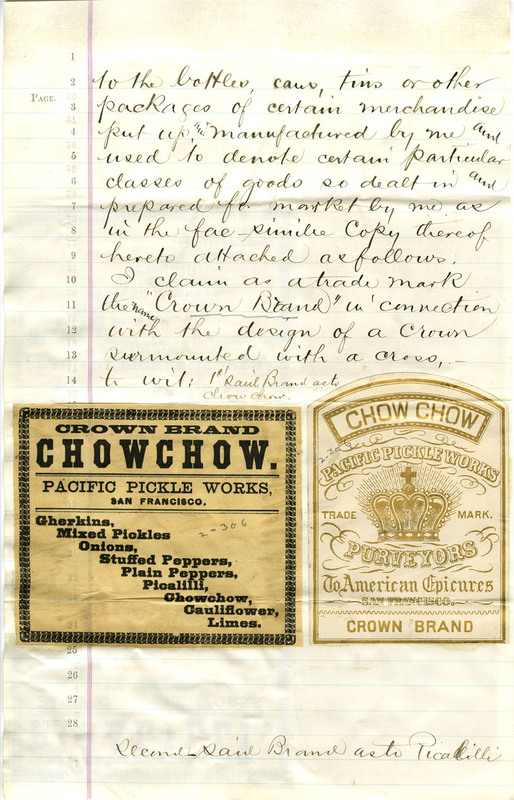 1
2 to the bottles, cans, tins or other
PAGE.
3 packages of certain merchandise
4 put up, manufactured by me and
5 used to denote certain particular
6 classes of goods so dealt in and
7 prepared for market by me as
8 in the fac-simile Copy thereof
9 hereto attached as follows.
10 I claim as a trade mark
11 the name "Crown Brand" in connection
12 with the design of a Crown
13 surmounted with a cross, -
14 to wit: 1st Said Brand as to
Chow chow.
CROWN BRAND
CHOWCHOW.
PACIFIC PICKLE WORKS,
SAN FRANCISCO.
Gherkins,
Mixed Pickles
Onions,
Stuffed Peppers,
Plain Peppers,
Picalilli,
Chowchow,
Cauliflower,
Limes.
2-306
CHOW CHOW
PACIFIC PICKLE WORKS
TRADE MARK.
PURVEYORS
To American Epicures
SAN FRANCISCO.
CROWN BRAND
25
26
27
28
Second - Said Brand as to Picalilli